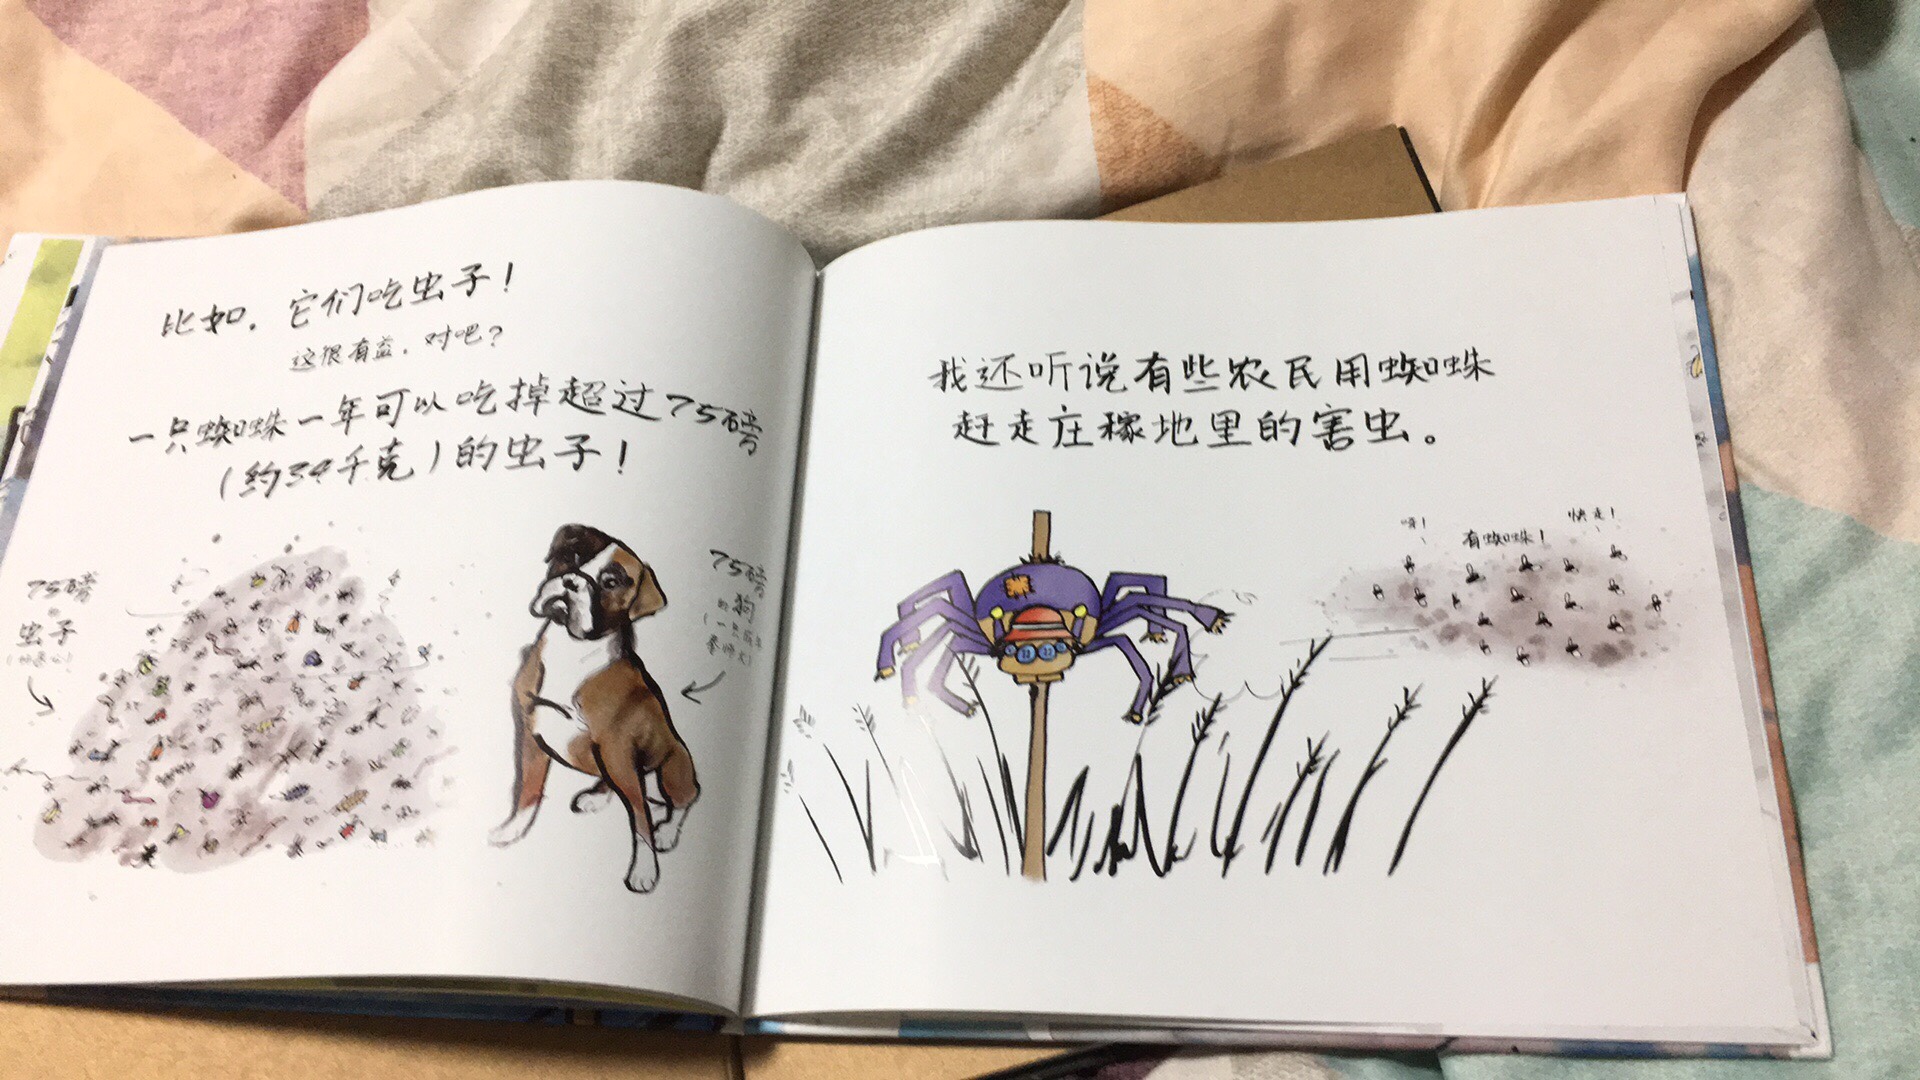 比如，它们吃虫子！
这很有益，对吧？
一只蜘蛛一年可以吃掉超过75磅
（约34千克）的虫子！
75磅
的
虫子
75磅
的
狗
我还听说有些农民用蜘蛛
赶走庄稼地里的害虫。
呀！
有蜘蛛！
快走！